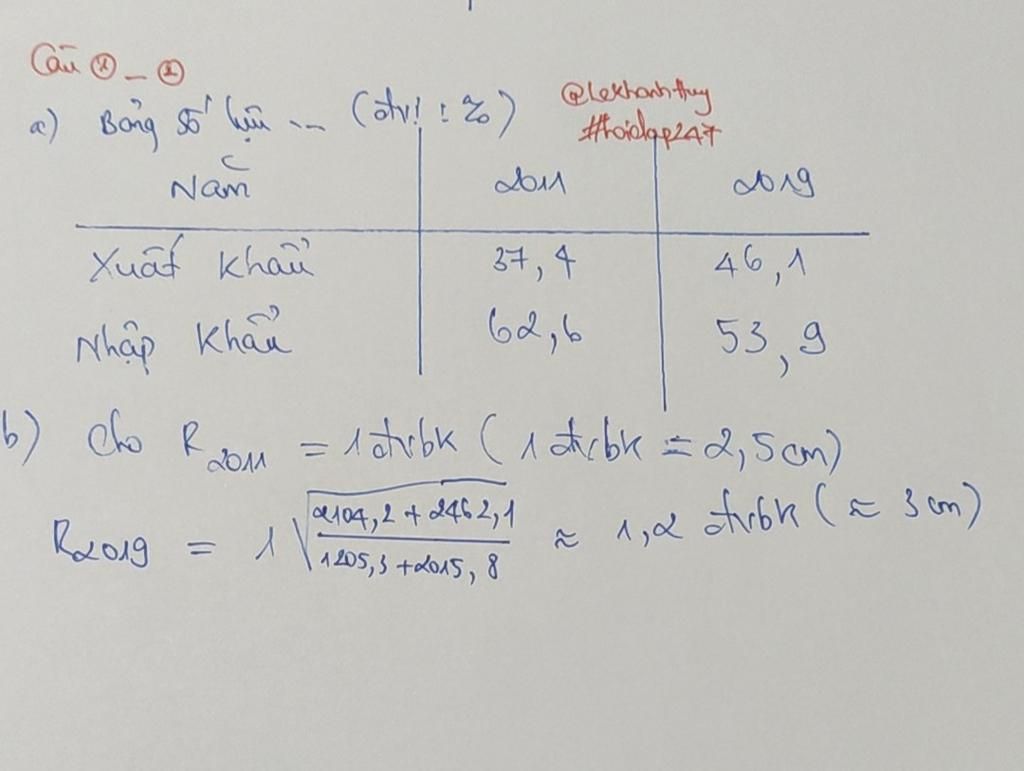 Câu ① - ②
@lekhanhthuy
#hoidap247
a) Bảng số liệu ... (đvị : %)
Năm 2011 2019
Xuất khẩu 37,4 46,1
Nhập khẩu 62,6 53,9
b) Cho R2011 = 1 đvbk (1 đvbk = 2,5 cm)
R2019 = 1 √((2104,2 + 2462,1)/(1205,3 + 2015,8)) ≈ 1,2 đvbk (≈ 3 cm)